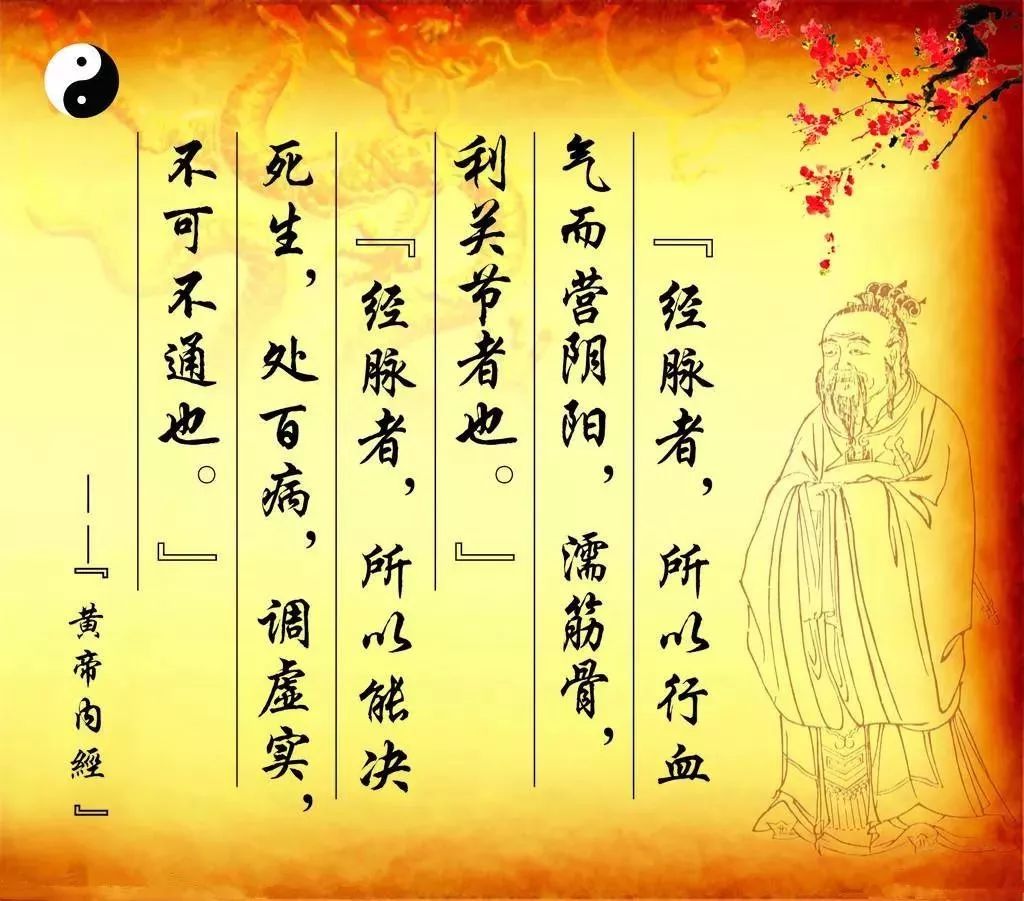 『经脉者，所以行血
气而营阴阳，濡筋骨，
利关节者也。』
『经脉者，所以能决
死生，处百病，调虚实，
不可不通也。』
——『黄帝内經』